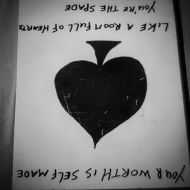 YOUR WORTH IS SELF MADE
LIKE A ROOM FULL OF HEARTS
YOU'RE THE SPADE